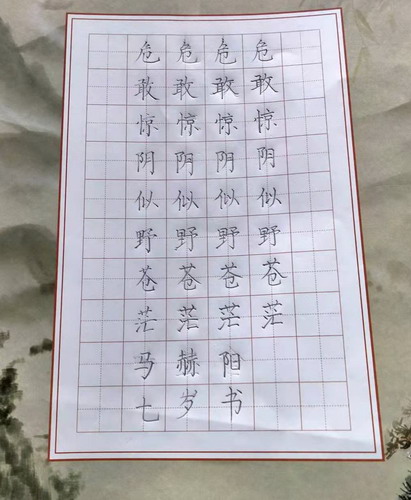 危危危危
敢敢敢敢
惊惊惊惊
阴阴阴阴
似似似似
野野野野
苍苍苍苍
茫茫茫茫
马赫阳
七岁书